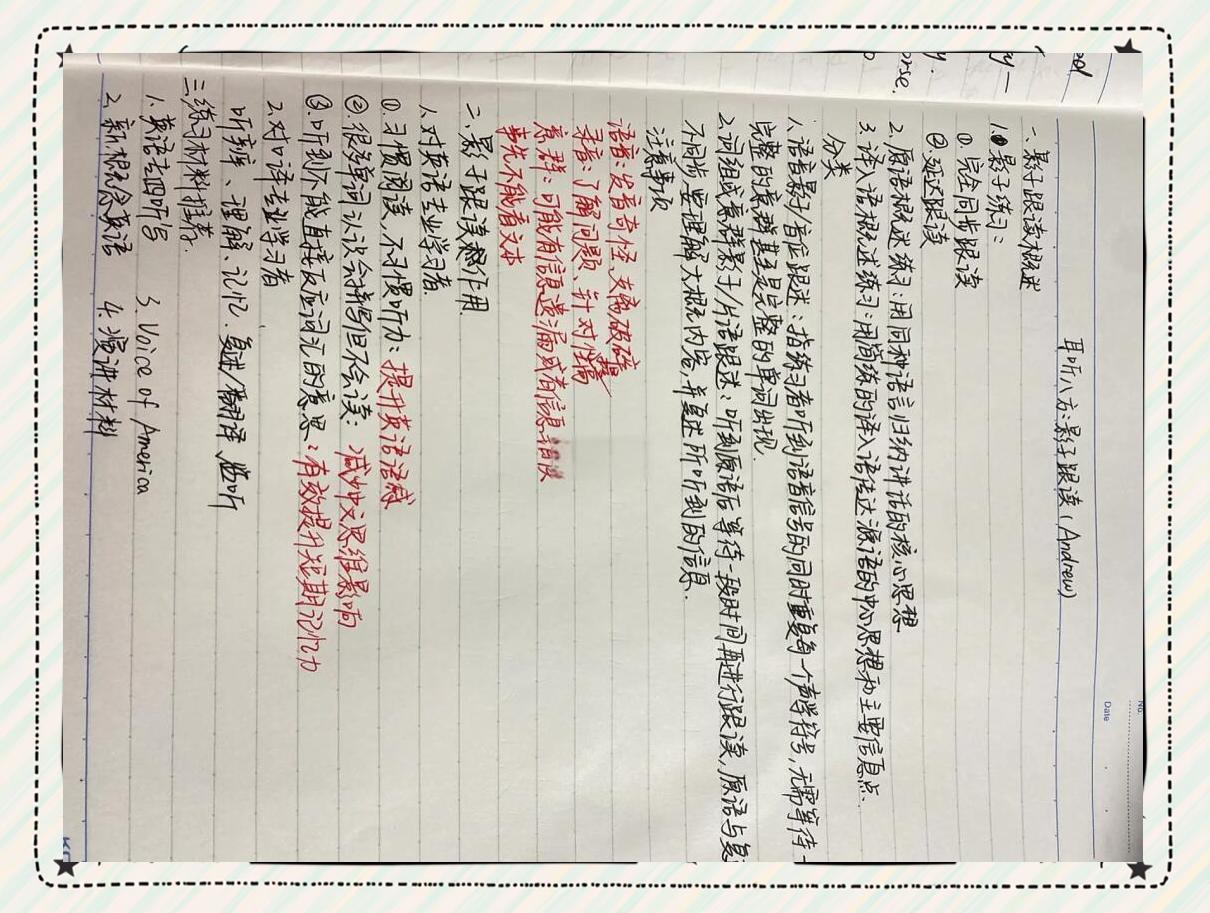 No.
Date
耳听八方:影子跟读(Andrew)
一.影子跟读概述
1.影子练习:
①.完全同步跟读
②延迟跟读
2.原语概述练习:用同种语言归纳讲话的核心思想
3.译入语概述练习:用简练的译入语传达源语的中心思想和主要信息点.
分类
1.语音影子/音位跟述:指练习者听到语音信号的同时重复每一个声学符号,无需等待一
完整的意群甚至是完整的单词出现.
2.词组或意群影子/片语跟述:听到原语后等待一段时间再进行跟读,原语与复
不同步,要理解大概内容,并复述所听到的信息.
注意事项
语音:发音奇怪,支离破碎
录音:了解问题、针对性提高
意群:可能有信息遗漏或有信息错误
事先不能看文本
二.影子跟读作用
1.对英语专业学习者.
①习惯阅读,不习惯听力:提升英语语感
②.很多单词认识会拼写但不会读:减少中文思维影响
③.听到不能直接反应词汇的意思:有效提升短期记忆力
2.对口译专业学习者
听辨、理解、记忆.复述/翻译
三.练习材料推荐.
1.英语专四听写 3. Voice of America
2.新概念英语 4.演讲材料
rse.
y.
y—